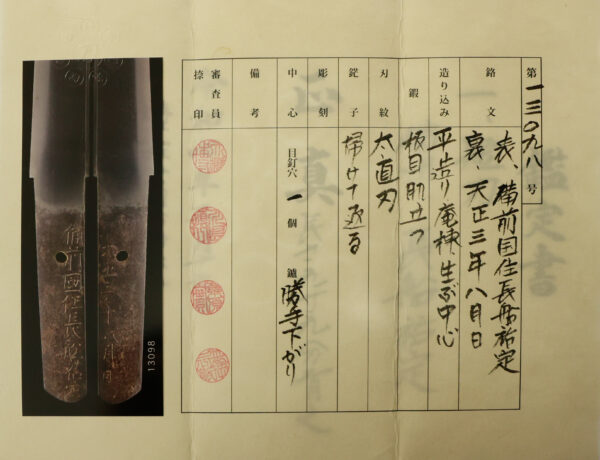 第一三〇九八号
銘文
表、備前国住長船祐定
裏、天正三年八月日
造り込み
平造り庵棟生ぶ中心
鍛
板目肌立つ
刃紋
太直刃
鋩子
掃けて返る
彫刻
中心
目釘穴 一 個 鑢 勝手下がり
備考
審査員
捺印
備前國住長船祐定
13098